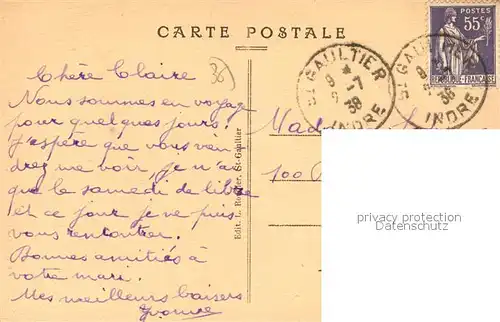 CARTE POSTALE
POSTES
55c
RÉPUBLIQUE FRANÇAISE
ST GAULTIER
9 -7
38
INDRE
ST GAULTIER
9
38
INDRE
36
Chère Claire
Nous sommes en voyage
pour quelques jours
j'espère que vous vien
drez me voir, je n'ai
que le samedi de libre
et ce jour je ne puis
vous rencontrer.
Bonnes amitiés à
votre mari.
Mes meilleurs baisers
Yvonne
Edit. L. St-Gaultier
Mad
100
privacy protection
Datenschutz